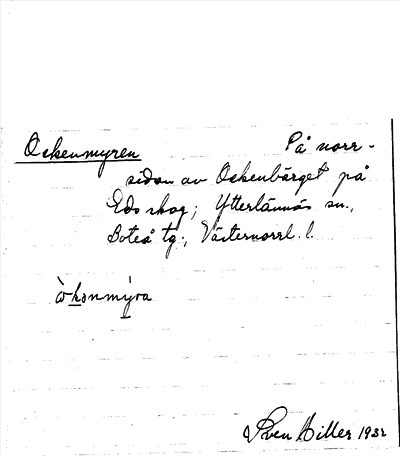 Ockenmyren På norr-
sidan av Ockenbärget på
Eds skog; Ytterlännäs sn.,
Boteå tg., Västernorrl. l.
òkǝnmỳra
Sven Hiller 1932